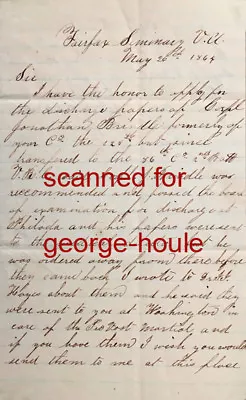 Fairfax Seminary Va
May 26th 1864
Sir
I have the honor to apply for
the discharge papers of Corpl
Jonathan formerly of
your Co. the 125th but
transfered to the 86th Co. 2d Batt
V.R.
scanned for
was
recommended and passed the board
of examination for discharge at
and his papers were sent
to
george-houle
he
was ordered away from there before
they came back I wrote to
Hayes about them and he said they
were sent to you at Washington in
care of the Provost Martial and
if you have them I wish you would
send them to me at this place